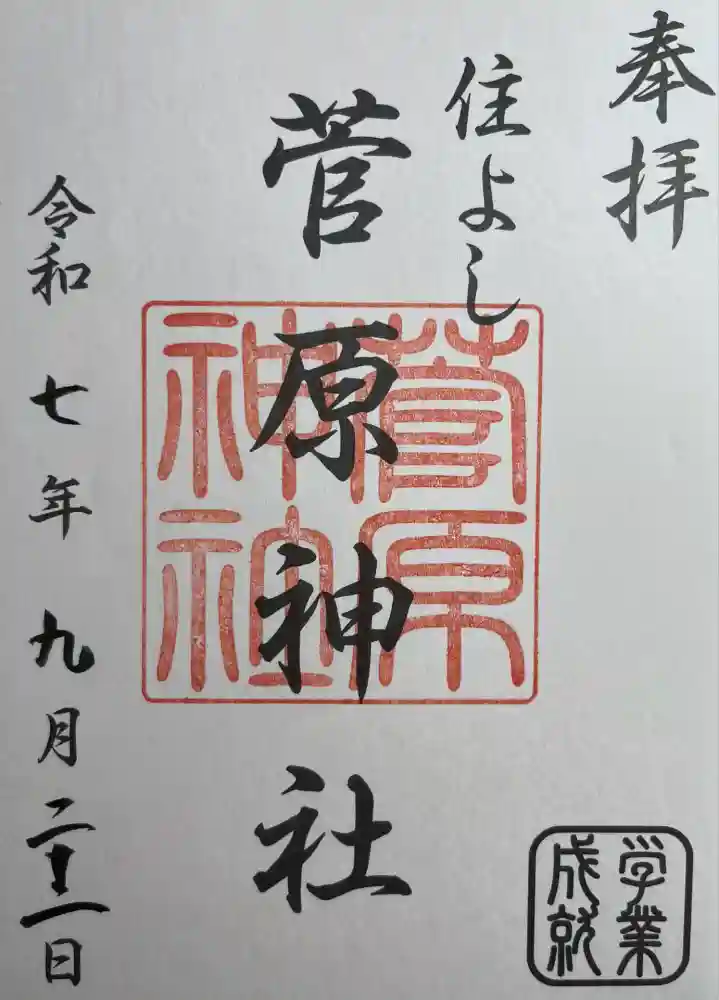 奉拝
住よし
菅原神社
菅原神社
令和七年九月二十一日
学業
成就